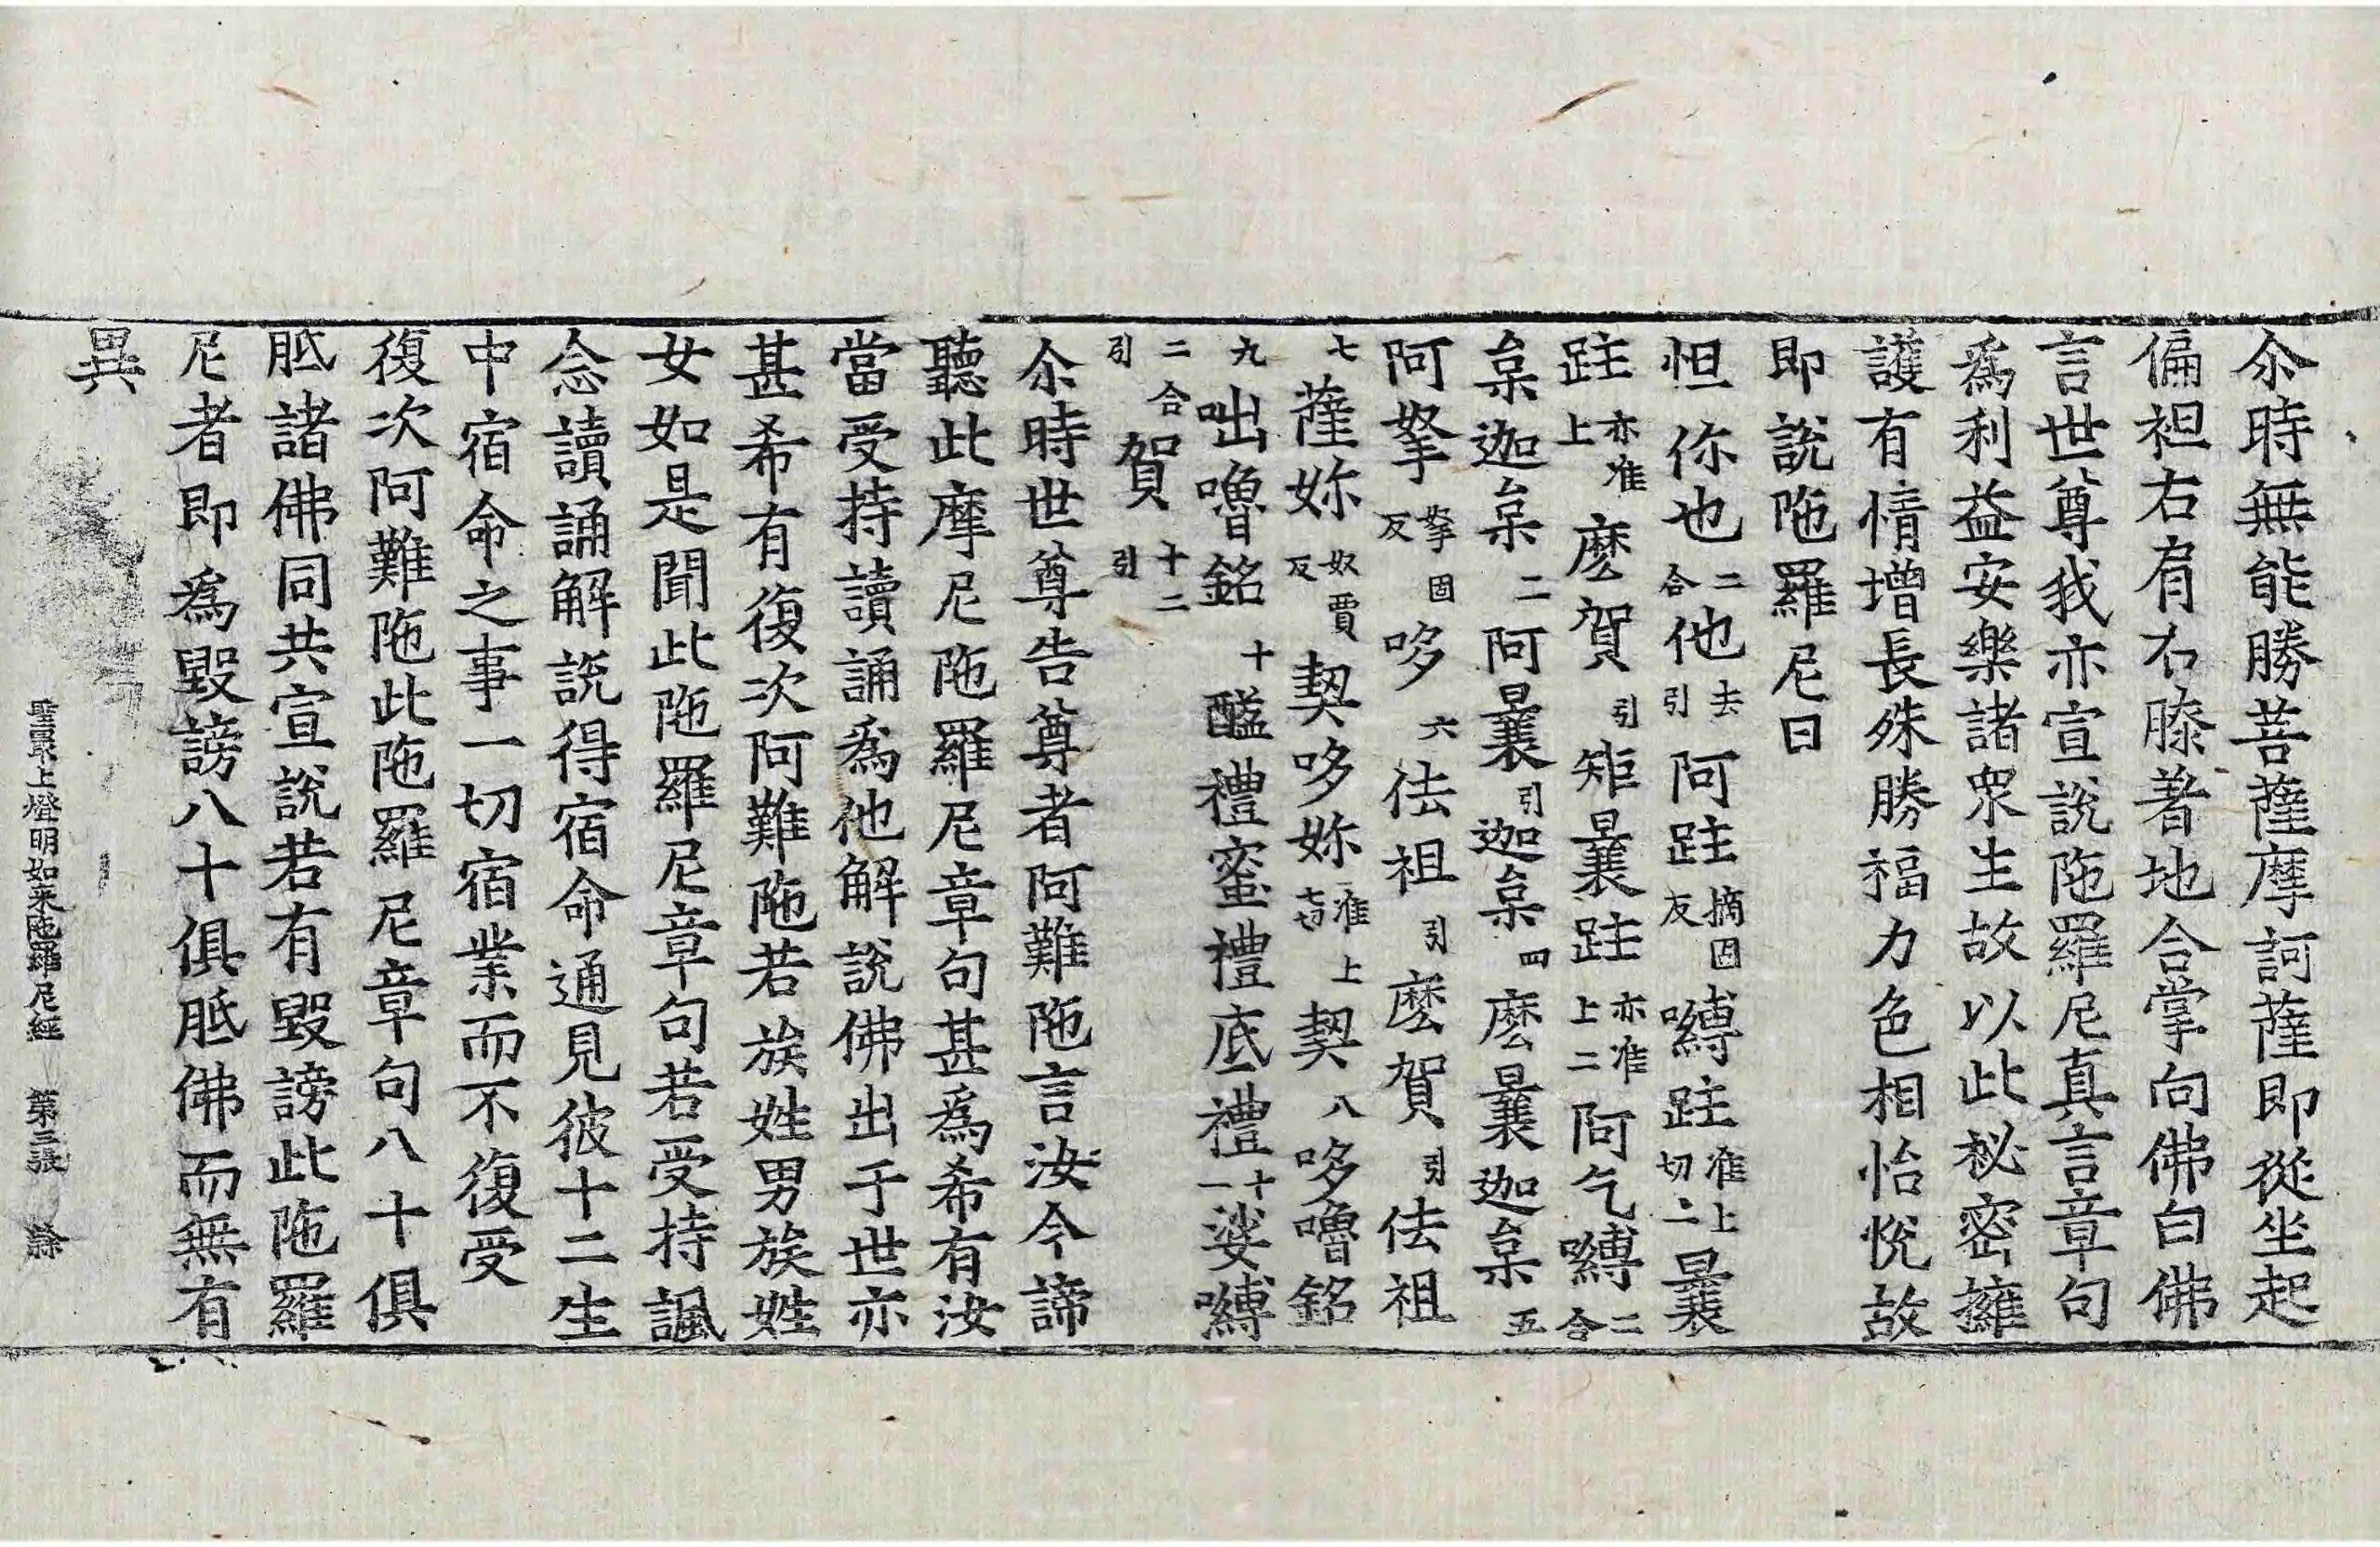 尒時無能勝菩薩摩訶薩即從坐起
偏袒右肩右膝著地合掌向佛白佛
言世尊我亦宣說陁羅尼真言章句
爲利益安樂諸衆生故以此秘密擁
護有情增長殊勝福力色相怡悅故
即說陁羅尼曰
怛你也二合他去引阿跓摘固反嚩跓准上切二曩
跓亦准上麼賀引矩曩跓亦准上二阿气嚩二合
枲迦枲二阿曩引迦枲四麼曩迦枲五
阿拏拏固反哆六佉祖引麼賀引佉祖
七薩妳奴賈反契哆妳准上七切契八哆嚕銘
九咄嚕銘十醯禮蜜禮底禮十一娑嚩
二合引賀十二引
尒時世尊告尊者阿難陁言汝今諦
聽此摩尼陁羅尼章句甚爲希有汝
當受持讀誦爲他解說佛出于世亦
甚希有復次阿難陁若族姓男族姓
女如是聞此陁羅尼章句若受持諷
念讀誦解說得宿命通見彼十二生
中宿命之事一切宿業而不復受
復次阿難陁此陁羅尼章句八十俱
胝諸佛同共宣說若有毀謗此陁羅
尼者即爲毀謗八十俱胝佛而無有
異
聖最上燈明如来陁羅尼經 第三張